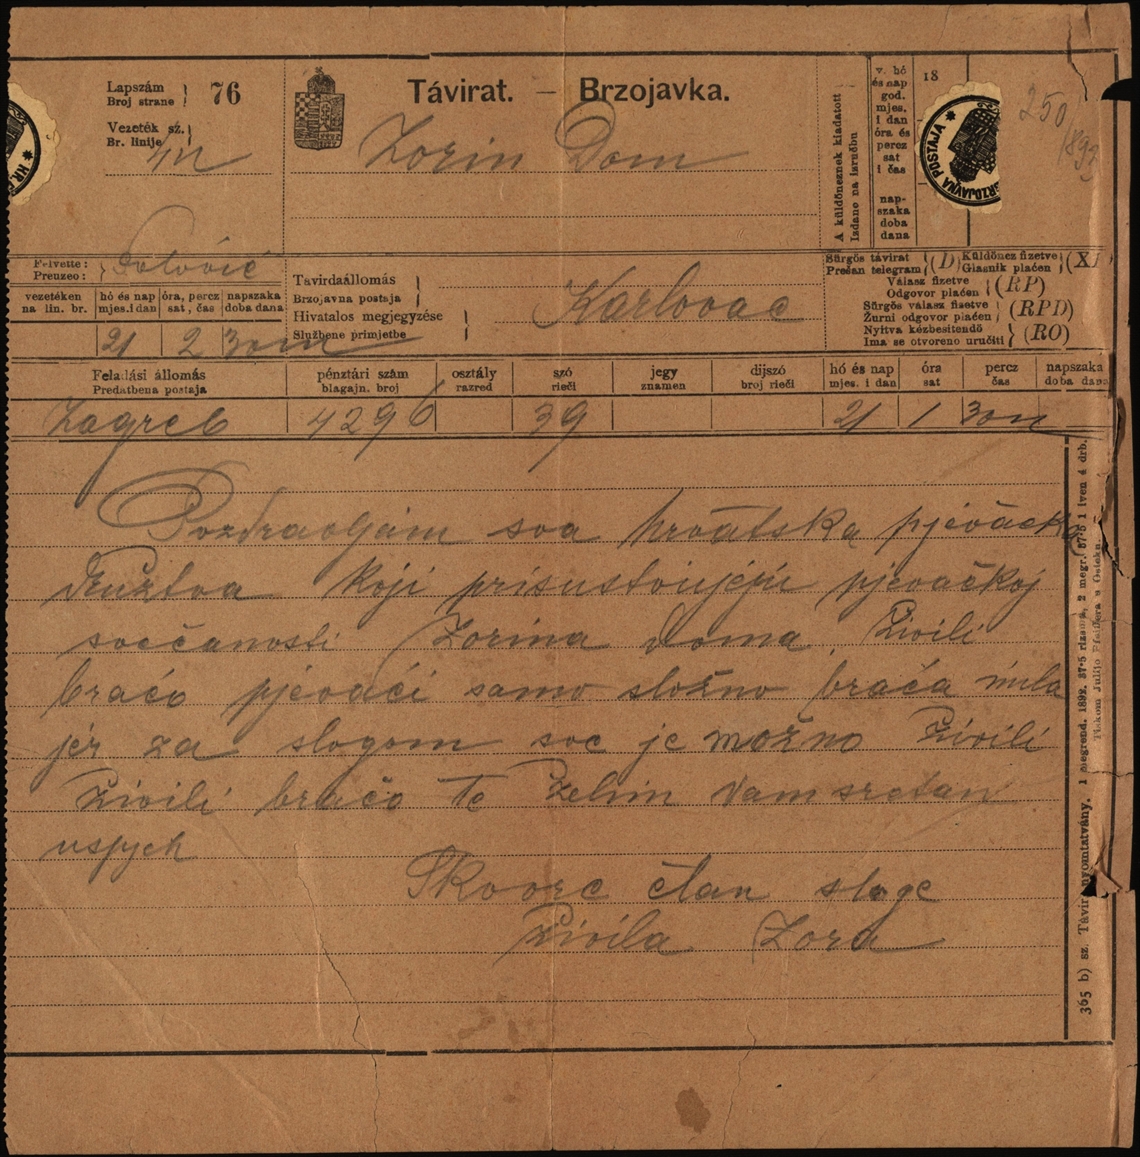 Lapszám
Broj strane
76
Vezeték sz.
Br. linije
Távirat. — Brzojavka.
Zorin Dom
A küldöncznek kiadatott
Izdano na izručbu
v. hó
és nap
god.
mjes.
i dan
óra és
percz
sat
i čas
nap-
szaka
doba
dana
18
BRZOJAVNA POSTAJA
250
1893
Felvette:
Preuzeo:
vezetéken
na lin. br.
hó és nap
mjes. i dan
óra, percz
sat, čas
napszaka
doba dana
21 2 30 m
Távirdaállomás
Brzojavna postaja
Hivatalos megjegyzése
Službene primjetbe
Karlovac
Sürgős távirat
Prešan telegram
(D)
Küldöncz fizetve
Glasnik plaćen
(XP)
Válasz fizetve
Odgovor plaćen
(RP)
Sürgős válasz fizetve
Žurni odgovor plaćen
(RPD)
Nyitva kézbesitendő
Ima se otvoreno uručiti
(RO)
Feladási állomás
Predatbena postaja
pénztári szám
blagajn. broj
osztály
razred
szó
rieči
jegy
znamen
díjszó
broj rieči
hó és nap
mjes. i dan
óra
sat
percz
čas
napszaka
doba dana
Zagreb 4296 39 21 1 30 m
Pozdravljam sva hrvatska pjevačka
družtva koji prisustvujeju pjevačkoj
svečanosti Zorina doma. Živili
braćo pjevači samo složno braća mila
jer za slogom sve je možno Živili
Živili braćo te želim vam sretan
uspjeh
Skvorc član sloge
Živila Zora
365 b) sz. Távir. nyomtatvány. 1 megrend. 1892. 37·5 rizsma, 2 megr. 37·5 1 iven 4 drb.
Tiskom Julijo Pfeiffera u Osieku.